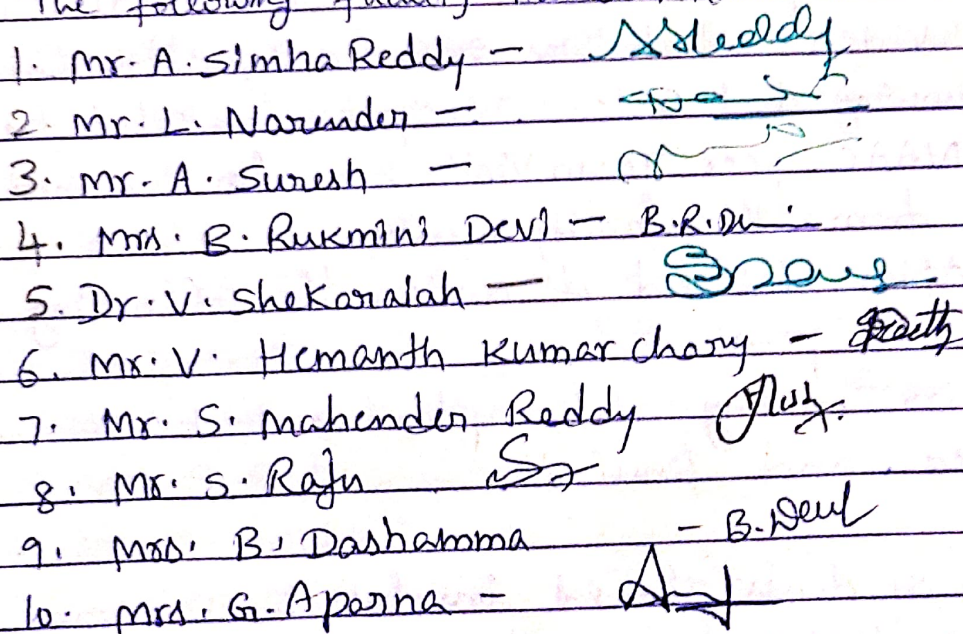 The following
1. Mr. A. Simha Reddy - ASReddy
2. Mr. L. Narender -
3. Mr. A. Suresh -
4. Mrs. B. Rukmini Devi - B.R.Devi
5. Dr. V. Shekaraiah -
6. Mr. V. Hemanth Kumar chary -
7. Mr. S. Mahender Reddy
8. Mr. S. Raju
9. Mrs. B. Dashamma - B.
10. Mrs. G. Aparna -